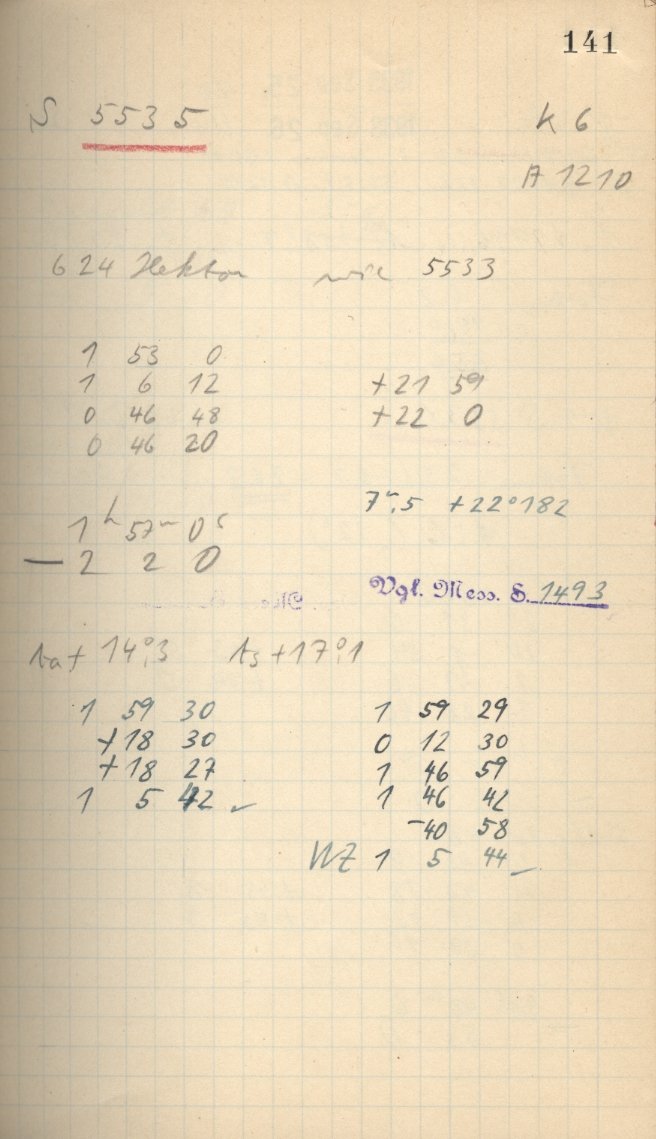 141
S 5535 K 6
A 1210
624 Hektor wie 5533
1 53 0
1 6 12 +21 59
0 46 48 +22 0
0 46 20
7ᵐ,5 +22°182
1ʰ 57ᵐ 0ˢ
— 2 2 0
Vgl. Mess. S. 1493
ta + 14°,3 ts + 17°,1
1 59 30 1 59 29
+18 30 0 12 30
+18 27 1 46 59
1 5 42 ✓ 1 46 42
-40 58
WZ 1 5 44 ✓